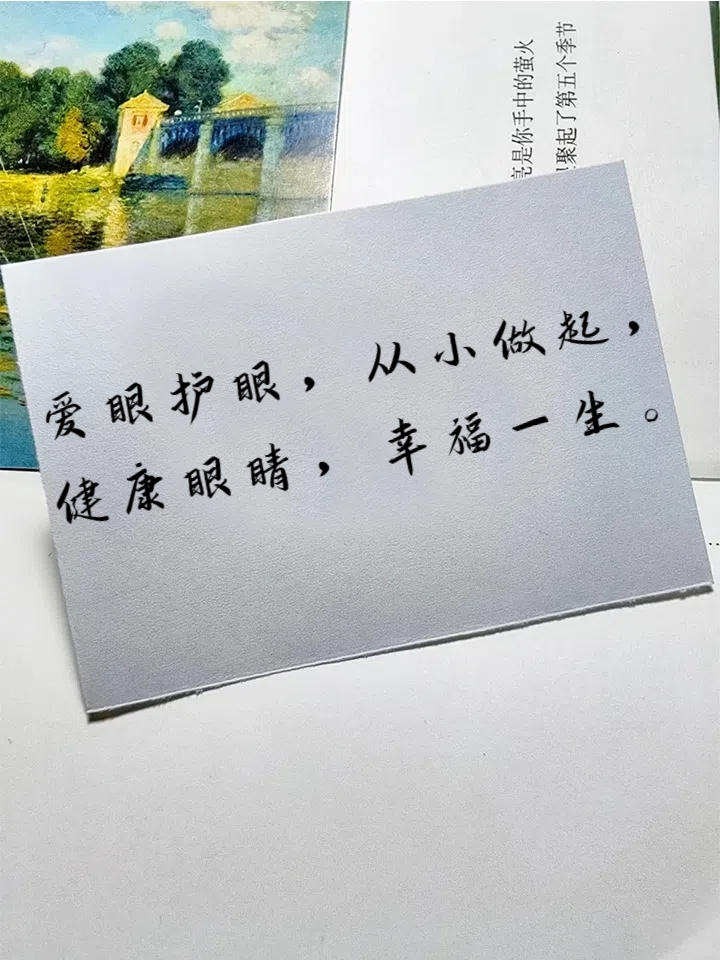 亮是你手中的萤火
聚起了第五个季节
爱眼护眼，从小做起，
健康眼睛，幸福一生。